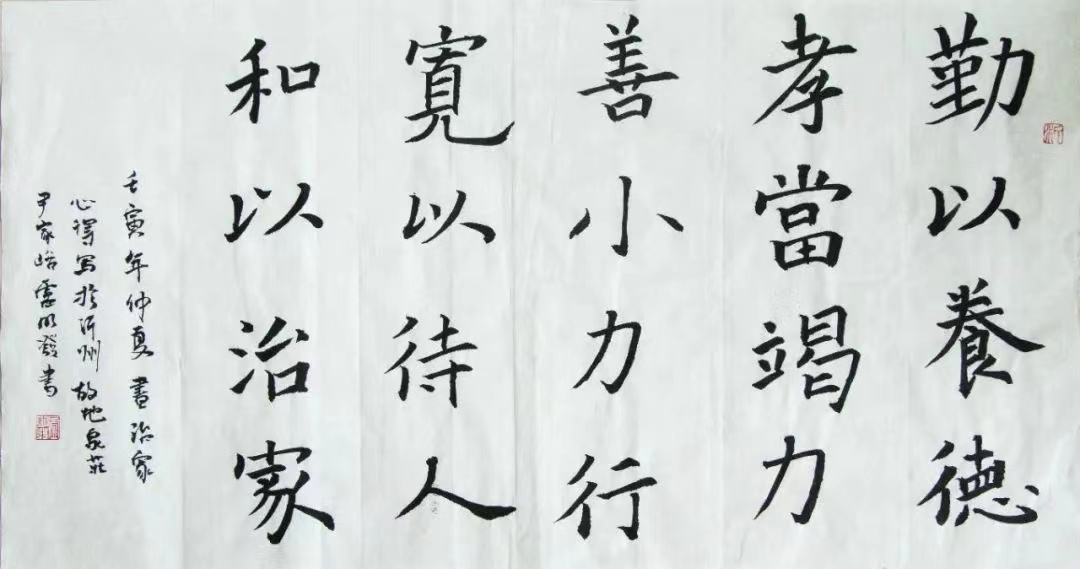 勤以養德
孝當竭力
善小力行
寬以待人
和以治家
壬寅年仲夏書治家
心得写於沂州故地泉莊
尹家峪雲明證書